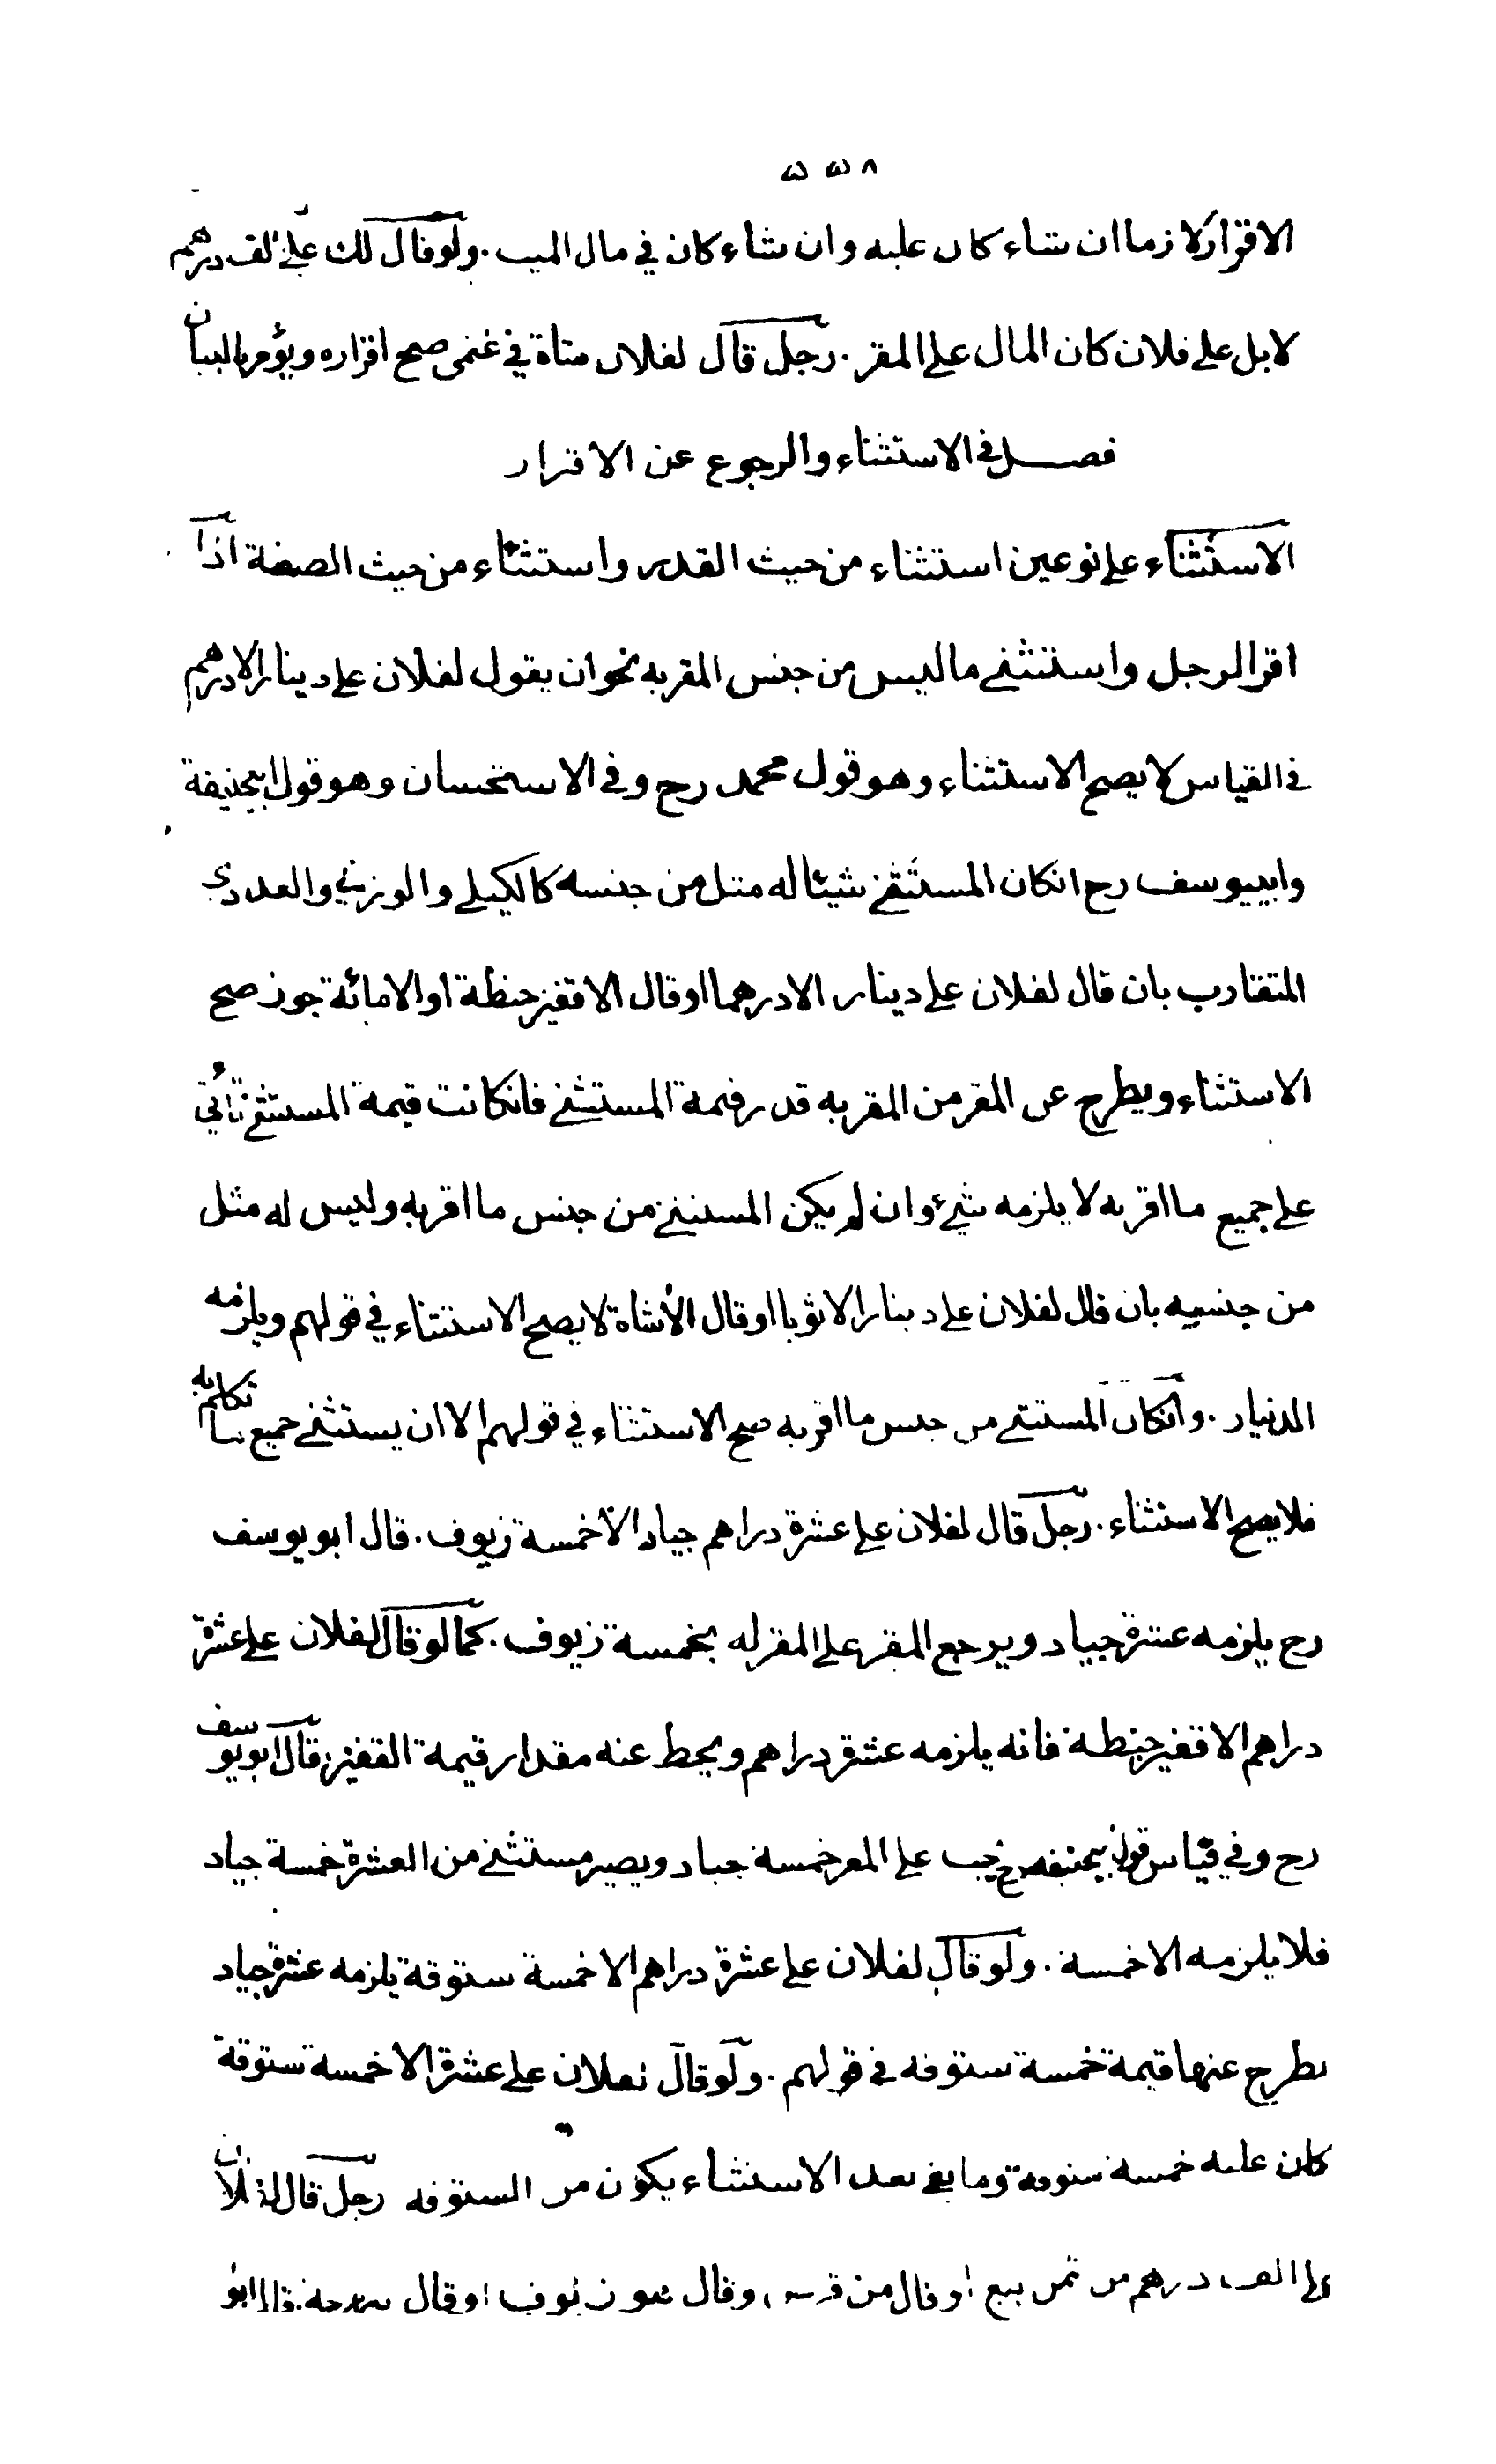 ۵۵۸
الاقرار لازما ان شاء كان عليه وان شاء كان في مال الميت . ولو قال لك علي الف درهم
لا بل على فلان كان المال على المقر . رجل قال لفلان شاة في غنمي صح اقراره ويؤمر بالبيان
فصل في الاستثناء والرجوع عن الاقرار
الاستثناء على نوعين استثناء من حيث القدر واستثناء من حيث الصفة اذا
اقر الرجل واستثنى ما ليس من جنس المقر به نحو ان يقول لفلان علي دينار الا درهم
في القياس لا يصح الاستثناء وهو قول محمد رح وفي الاستحسان وهو قول ابيحنيفة
وابييوسف رح انكان المستثنى شيئا له مثل من جنسه كالكيلي والوزني والعددي
المتقارب بان قال لفلان علي دينار الا درهما او قال الا قفيز حنطة او الا مائة جوز صح
الاستثناء ويطرح عن المقر من المقر به قدر قيمة المستثنى فانكانت قيمة المستثنى تأتي
على جميع ما اقر به لا يلزمه شيئ وان لم يكن المستثنى من جنس ما اقر به وليس له مثل
من جنسه بان قال لفلان علي دينار الا ثوبا او قال الا شاة لا يصح الاستثناء في قولهم ويلزمه
الدينار . وانكان المستثنى من جنس ما اقر به صح الاستثناء في قولهم الا ان يستثنى جميع ما تكلم به
فلا يصح الاستثناء . رجل قال لفلان علي عشرة دراهم جياد الا خمسة زيوف . قال ابو يوسف
رح يلزمه عشرة جياد ويرجع المقر على المقر له بخمسة زيوف . كما لو قال لفلان علي عشرة
دراهم الا قفيز حنطة فانه يلزمه عشرة دراهم ويحط عنه مقدار قيمة القفيز قال ابو يوسف
رح وفي قياس قول ابيحنيفه رح يجب على المقر خمسة جياد ويصير مستثنى من العشرة خمسة جياد
فلا يلزمه الا خمسة . ولو قال لفلان علي عشرة دراهم الا خمسة ستوقة يلزمه عشرة جياد
يطرح عنها قيمة خمسة ستوقه في قولهم . ولو قال لفلان علي عشرة الا خمسة ستوقة
كان عليه خمسة ستوقة وما بقي بعد الاستثناء يكون من الستوقه رجل قال لفلان
علي الف درهم من ثمن بيع او قال من قرض وقال هو زيوف او قال ابو